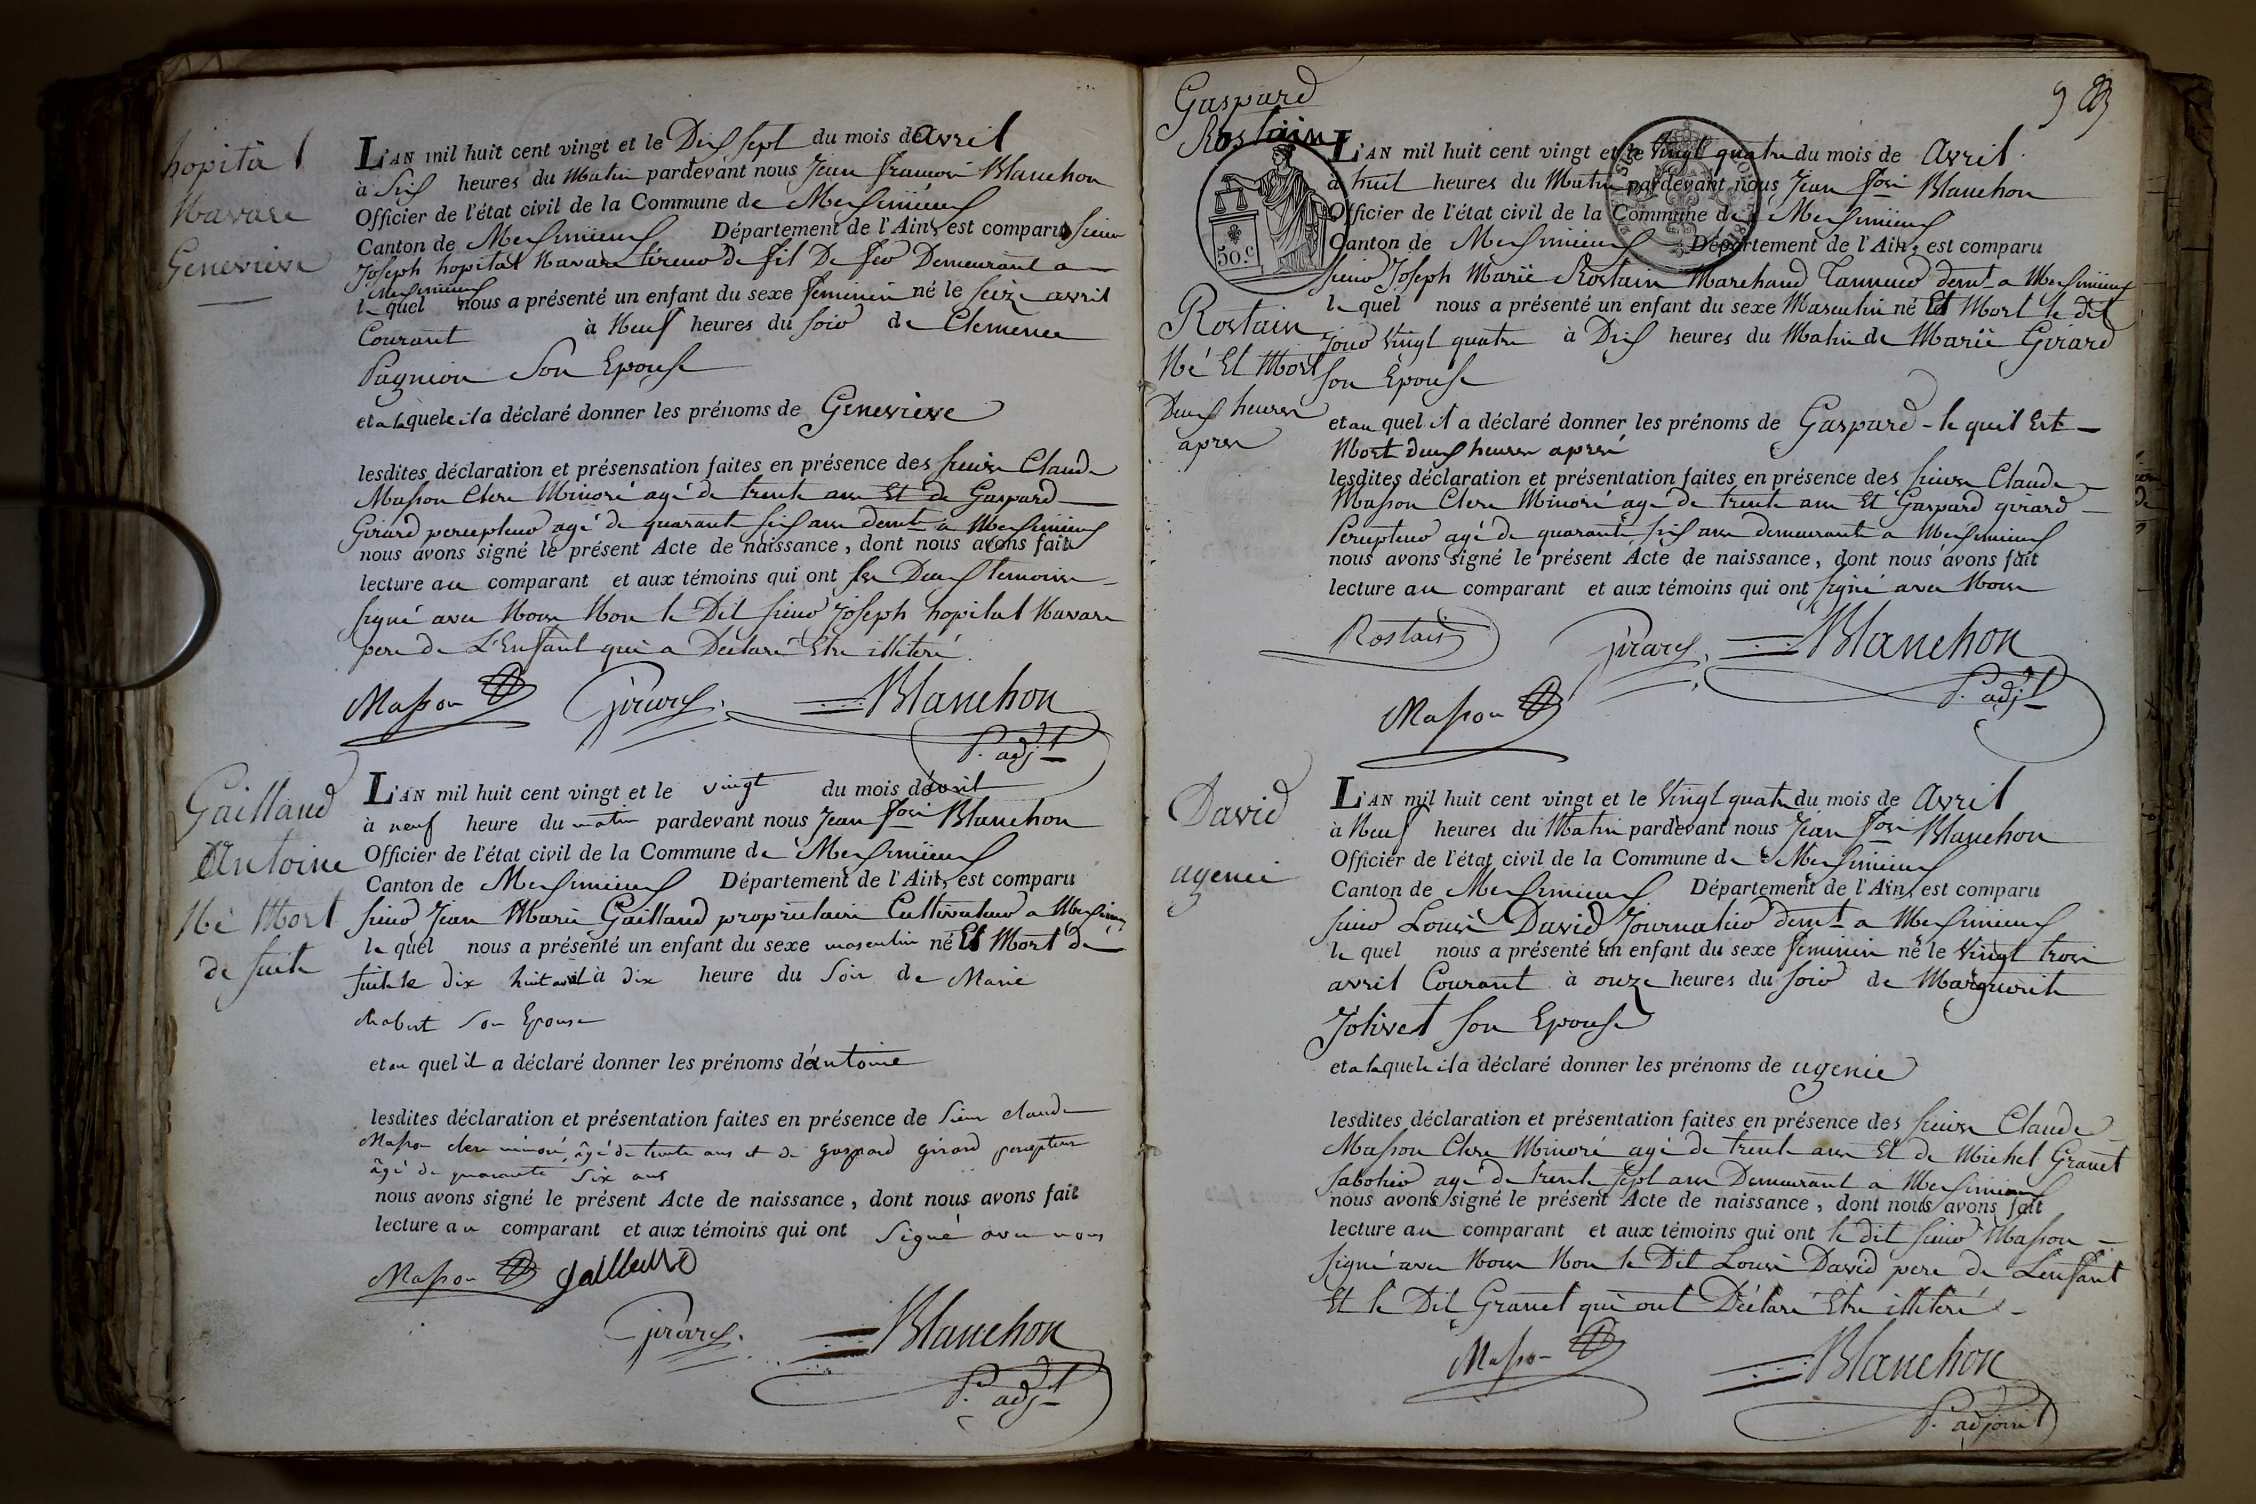 hopital
Navare
Genevieve
L'AN mil huit cent vingt et le Dix sept du mois de avril
à Six heures du Matin pardevant nous Jean François Blanchon
Officier de l'état civil de la Commune de Meximieux
Canton de Meximieux Département de l'Ain, est comparu sieur
Joseph hopital Navare tireur de fil De fer Demeurant a
Meximieux
le quel nous a présenté un enfant du sexe feminin né le seize avril
Courant à Neuf heures du soir de Clemence
Pagneon Son Epouse
et a laquele il a déclaré donner les prénoms de Genevieve
lesdites déclaration et présensation faites en présence des sieurs Claude
Masson Clerc Minoré agé de trente ans Et de Gaspard
Girard percepteur agé de quarante six ans demt a Meximieux
nous avons signé le présent Acte de naissance, dont nous avons fait
lecture au comparant et aux témoins qui ont les Deux temoins
signé avec Nous Non le Dit sieur Joseph hopital Navare
pere de L'Enfant qui a Declaré Etre illiteré.
Masson Girard Blanchon
P. adjt
Gailland
Antoine
Né Mort
de suite
L'AN mil huit cent vingt et le vingt du mois d'avril
à neuf heure du matin pardevant nous Jean fois Blanchon
Officier de l'état civil de la Commune de Meximieux
Canton de Meximieux Département de l'Ain, est comparu
sieur Jean Marie Gailland proprietaire Cultivateur a Meximieux
le quel nous a présenté un enfant du sexe masculin né Et Mort De
suite le dix huit avril à dix heure du Soir de Marie
chabert Son Epouse
et au quel il a déclaré donner les prénoms d'antoine
lesdites déclaration et présentation faites en présence de Sieur claude
Masson clerc minoré, âgé de trente ans et de gaspard girard percepteur
âgé de quarante six ans
nous avons signé le présent Acte de naissance, dont nous avons fait
lecture au comparant et aux témoins qui ont Signé avec nous
Masson Gailland
Girard Blanchon
P. adjt
Gaspard
Rostain
50.c
Rostain
Né Et Mort
Deux heures
apres
9 83
L'AN mil huit cent vingt et le Vingt quatre du mois de Avril
à huit heures du Matin pardevant nous Jean fois Blanchon
Officier de l'état civil de la Commune de Meximieux
Canton de Meximieux Département de l'Ain, est comparu
sieur Joseph Marie Rostain Marchand Tanneur demt a Meximieux
le quel nous a présenté un enfant du sexe Masculin né Et Mort le dit
jour Vingt quatre à Dix heures du Matin de Marie Girard
son Epouse
et au quel il a déclaré donner les prénoms de Gaspard - le quil Est
Mort deux heures apres
lesdites déclaration et présentation faites en présence des sieurs Claude
Masson Clerc Minoré agé de trente ans Et Gaspard girard
Percepteur agé de quarante six ans demeurants a Meximieux
nous avons signé le présent Acte de naissance, dont nous avons fait
lecture au comparant et aux témoins qui ont signé avec Nous
Rostain Girard Blanchon
P. adjt
Masson
David
ugenie
L'AN mil huit cent vingt et le Vingt quatre du mois de Avril
à Neuf heures du Matin pardevant nous Jean fois Blanchon
Officier de l'état civil de la Commune de Meximieux
Canton de Meximieux Département de l'Ain, est comparu
sieur Louis David Journalier demt a Meximieux
le quel nous a présenté un enfant du sexe feminin né le Vingt trois
avril Courant à onze heures du soir de Marguerite
Jolivet son Epouse
et a laquele il a déclaré donner les prénoms de ugenie
lesdites déclaration et présentation faites en présence des sieurs Claude
Masson Clerc Minoré agé de trente ans Et de Michel Granet
sabotier agé de trente sept ans Demeurant a Meximieux
nous avons signé le présent Acte de naissance, dont nous avons fait
lecture au comparant et aux témoins qui ont le dit sieur Masson
signé avec Nous Non le Dit Louis David pere de Lenfant
Et le Dit Granet qui ont Déclaré Etre illiteré
Masson Blanchon
P. adjoint